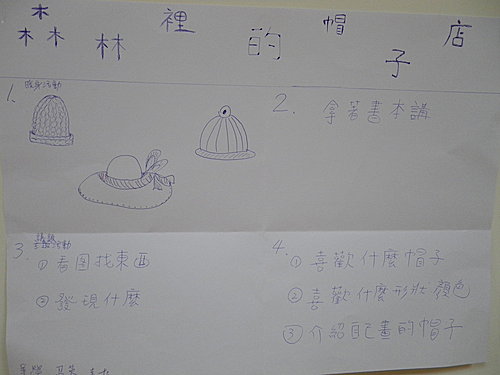 森林裡的帽子店
1. 暖身活動
2. 拿著書本講
3. 活動
① 看圖找東西
② 發現什麼
4. ① 喜歡什麼帽子
② 喜歡什麼形狀顏色
③ 介紹自己畫的帽子